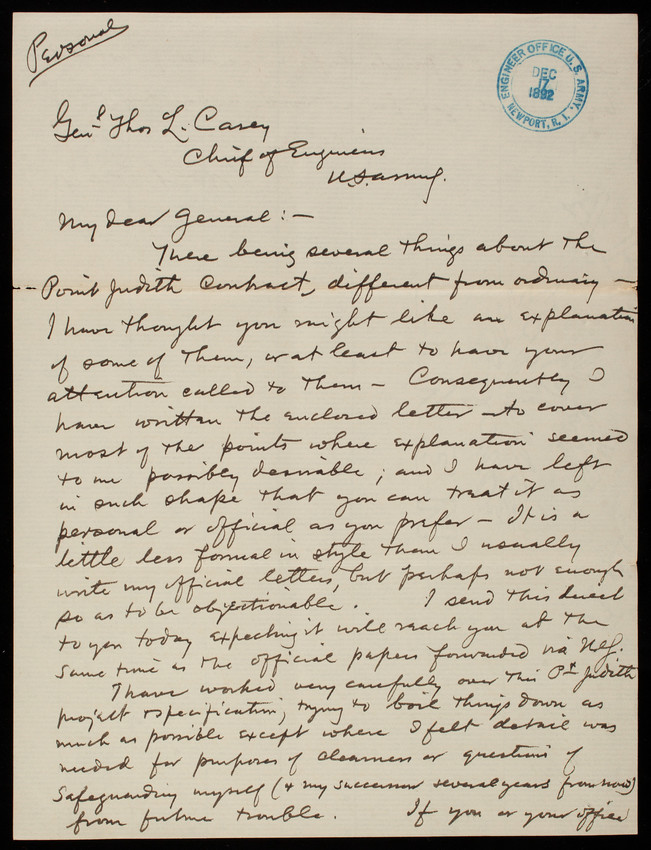 Personal
ENGINEER OFFICE U. S. ARMY.
DEC
17
1892
NEWPORT, R. I.
Genl Thos L. Casey
Chief of Engineers
U.S. Army.
My dear General:—
There being several things about the
Point Judith Contract, different from ordinary —
I have thought you might like an explanation
of some of them, or at least to have your
attention called to them — Consequently I
have written the enclosed letter — to cover
most of the points where explanation seemed
to me possibly desirable; and I have left
in such shape that you can treat it as
personal or official as you prefer — It is a
little less formal in style than I usually
write my official letters, but perhaps not enough
so as to be objectionable. I send this direct
to you today expecting it will reach you at the
same time as the official papers forwarded via N.Y.
I have worked very carefully over this Pt Judith
project & specification, trying to boil things down as
much as possible except where I felt detail was
needed for purposes of clearness or questions of
safeguarding myself (& my successor several years from now)
from future trouble. If you or your office